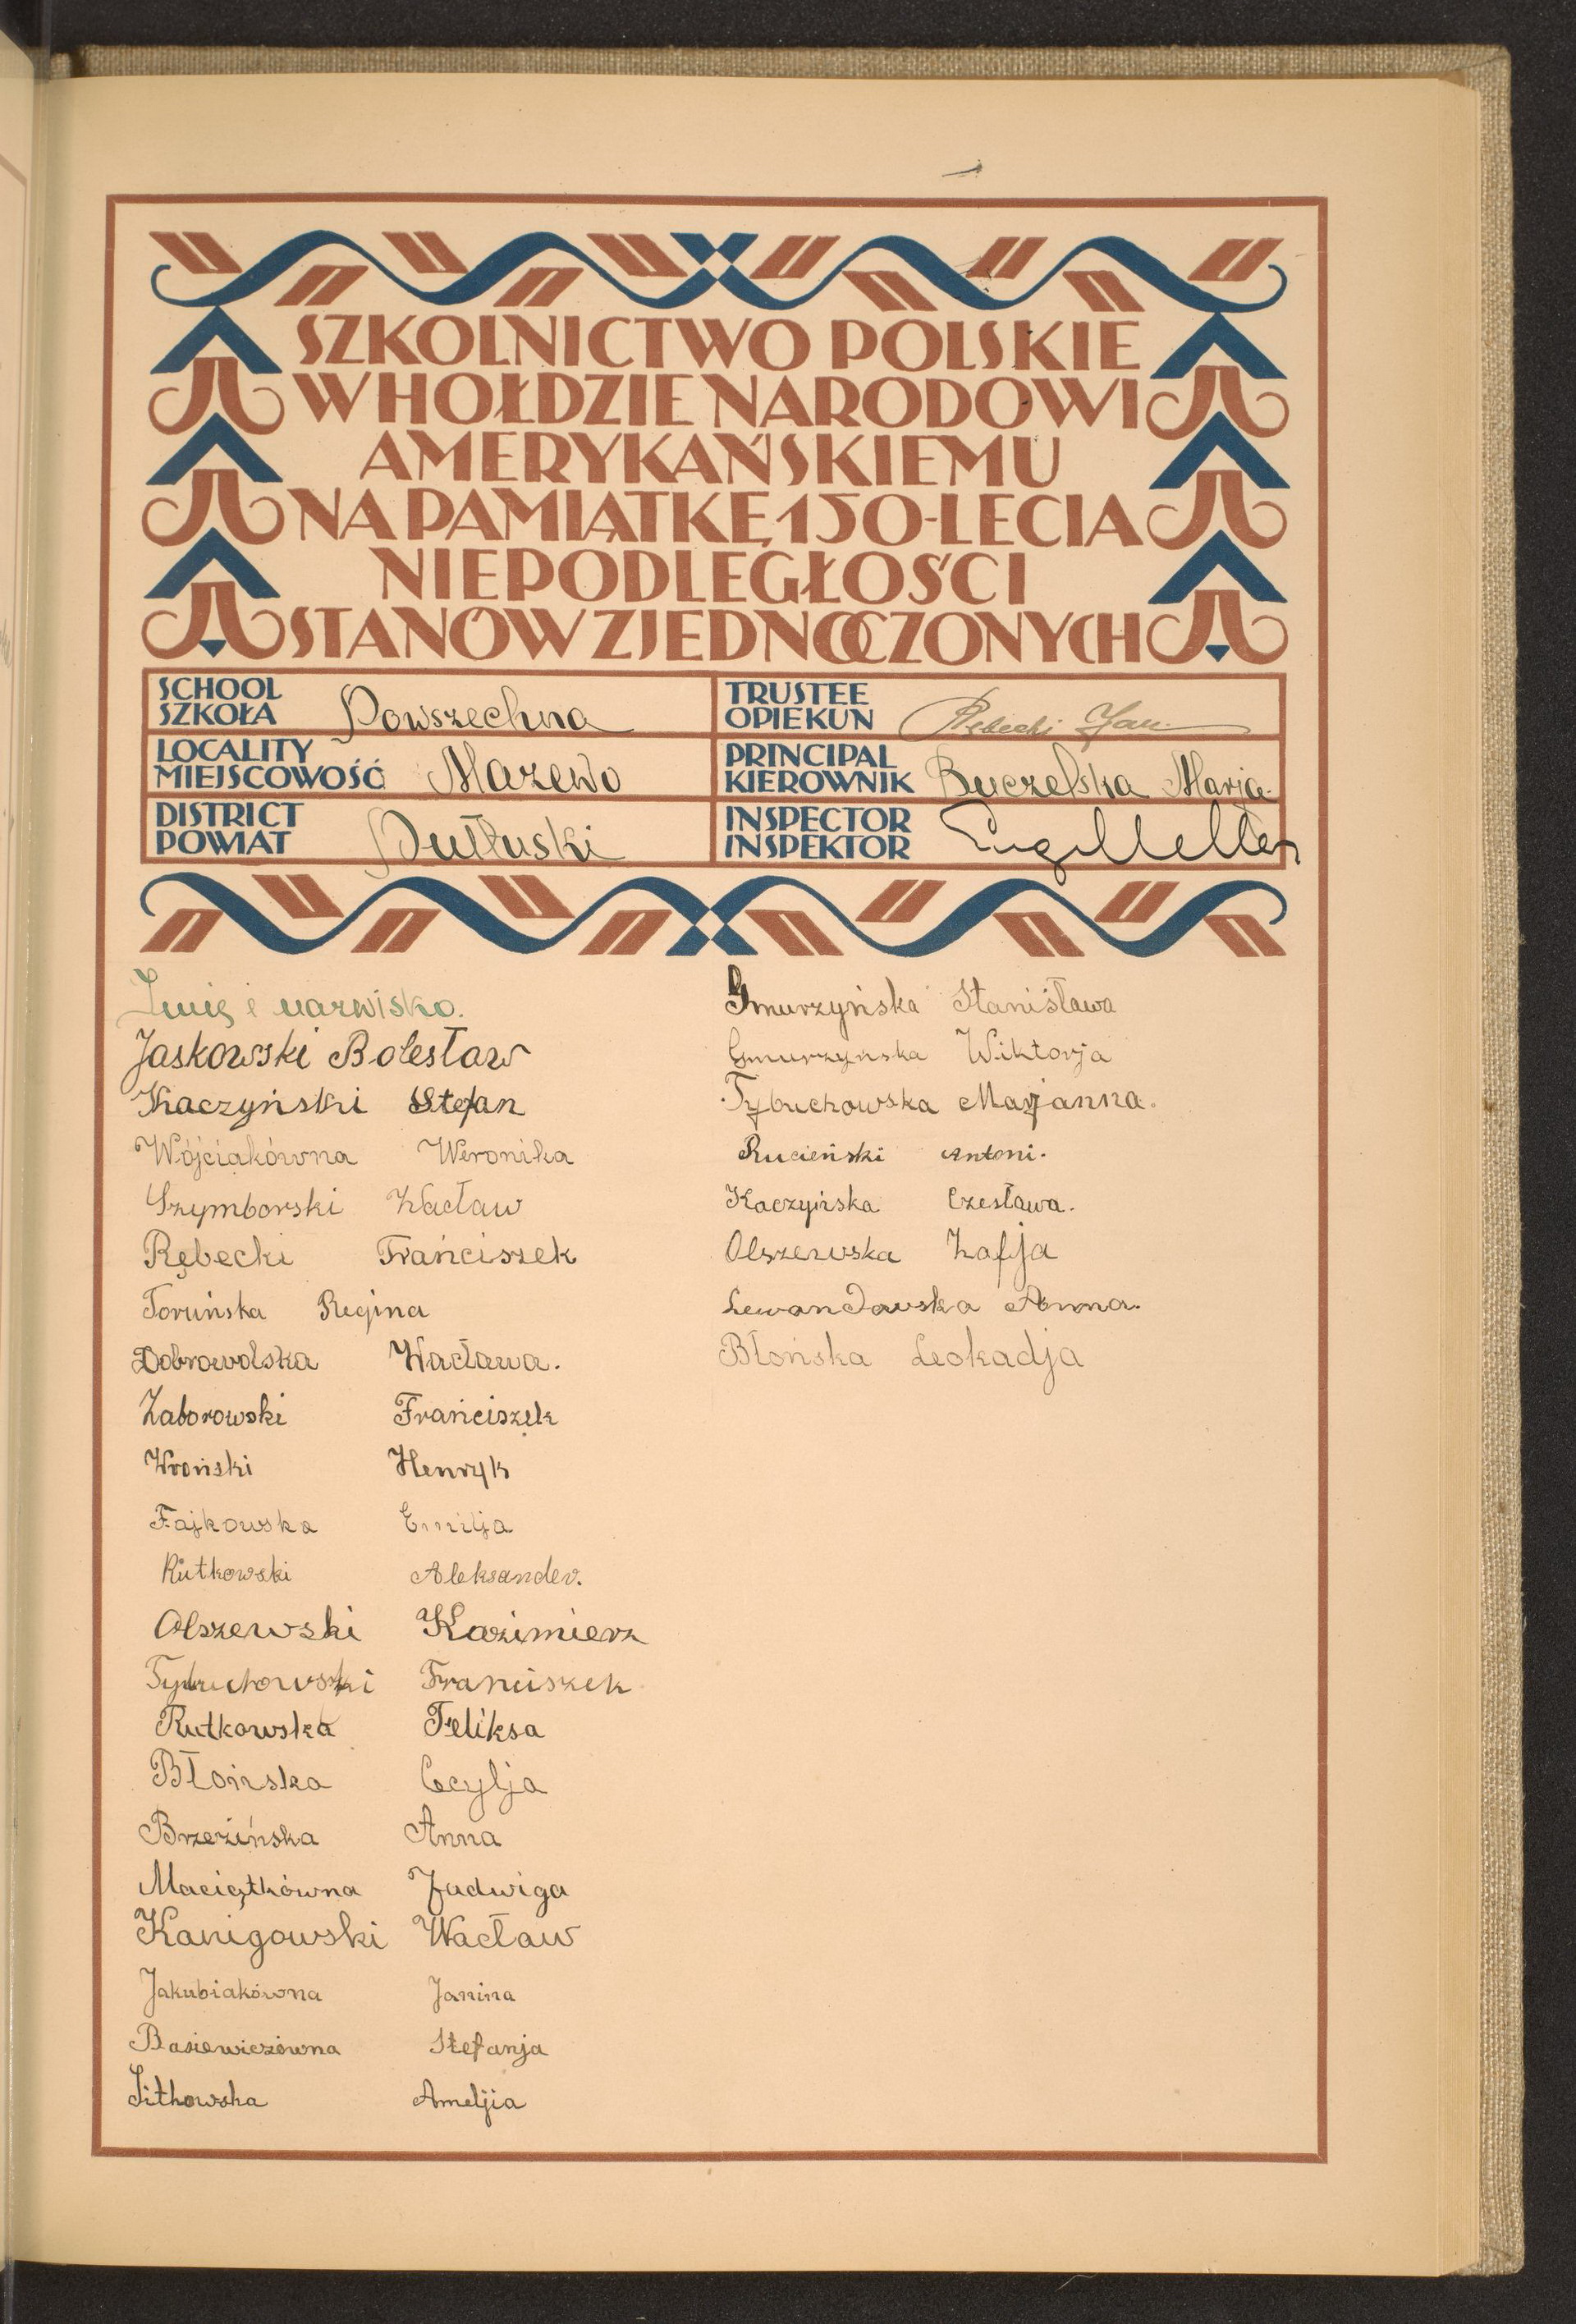 SZKOLNICTWO POLSKIE
W HOŁDZIE NARODOWI
AMERYKAŃSKIEMU
NA PAMIĄTKĘ 150-LECIA
NIEPODLEGŁOŚCI
STANÓW ZJEDNOCZONYCH
SCHOOL
SZKOŁA Powszechna
TRUSTEE
OPIEKUN Rębecki Jan
LOCALITY
MIEJSCOWOŚĆ Mazewo
PRINCIPAL
KIEROWNIK Buczelska Marja
DISTRICT
POWIAT Pułtuski
INSPECTOR
INSPEKTOR
Imię i nazwisko.
Jaskowski Bolesław
Kaczyński Stefan
Wójciakówna Weronika
Szymborski Wacław
Rębecki Frańciszek
Toruńska Regina
Dobrowolska Wacława.
Zaborowski Frańciszek
Wroński Henryk
Fajkowska Emilja
Rutkowski Aleksander.
Olszewski Kazimierz
Tybuchowski Franciszek
Rutkowska Feliksa
Błońska Cecylja
Brzezińska Anna
Maciątkówna Jadwiga
Kanigowski Wacław
Jakubiakówna Janina
Basiewiczówna Stefanja
Sitkowska Ameljia
Gmurzyńska Stanisława
Gmurzynska Wiktorja
Tybuchowska Marjanna.
Rucieński Antoni.
Kaczyńska Czesława.
Olszewska Zofja
Lewandowska Anna.
Błońska Leokadja